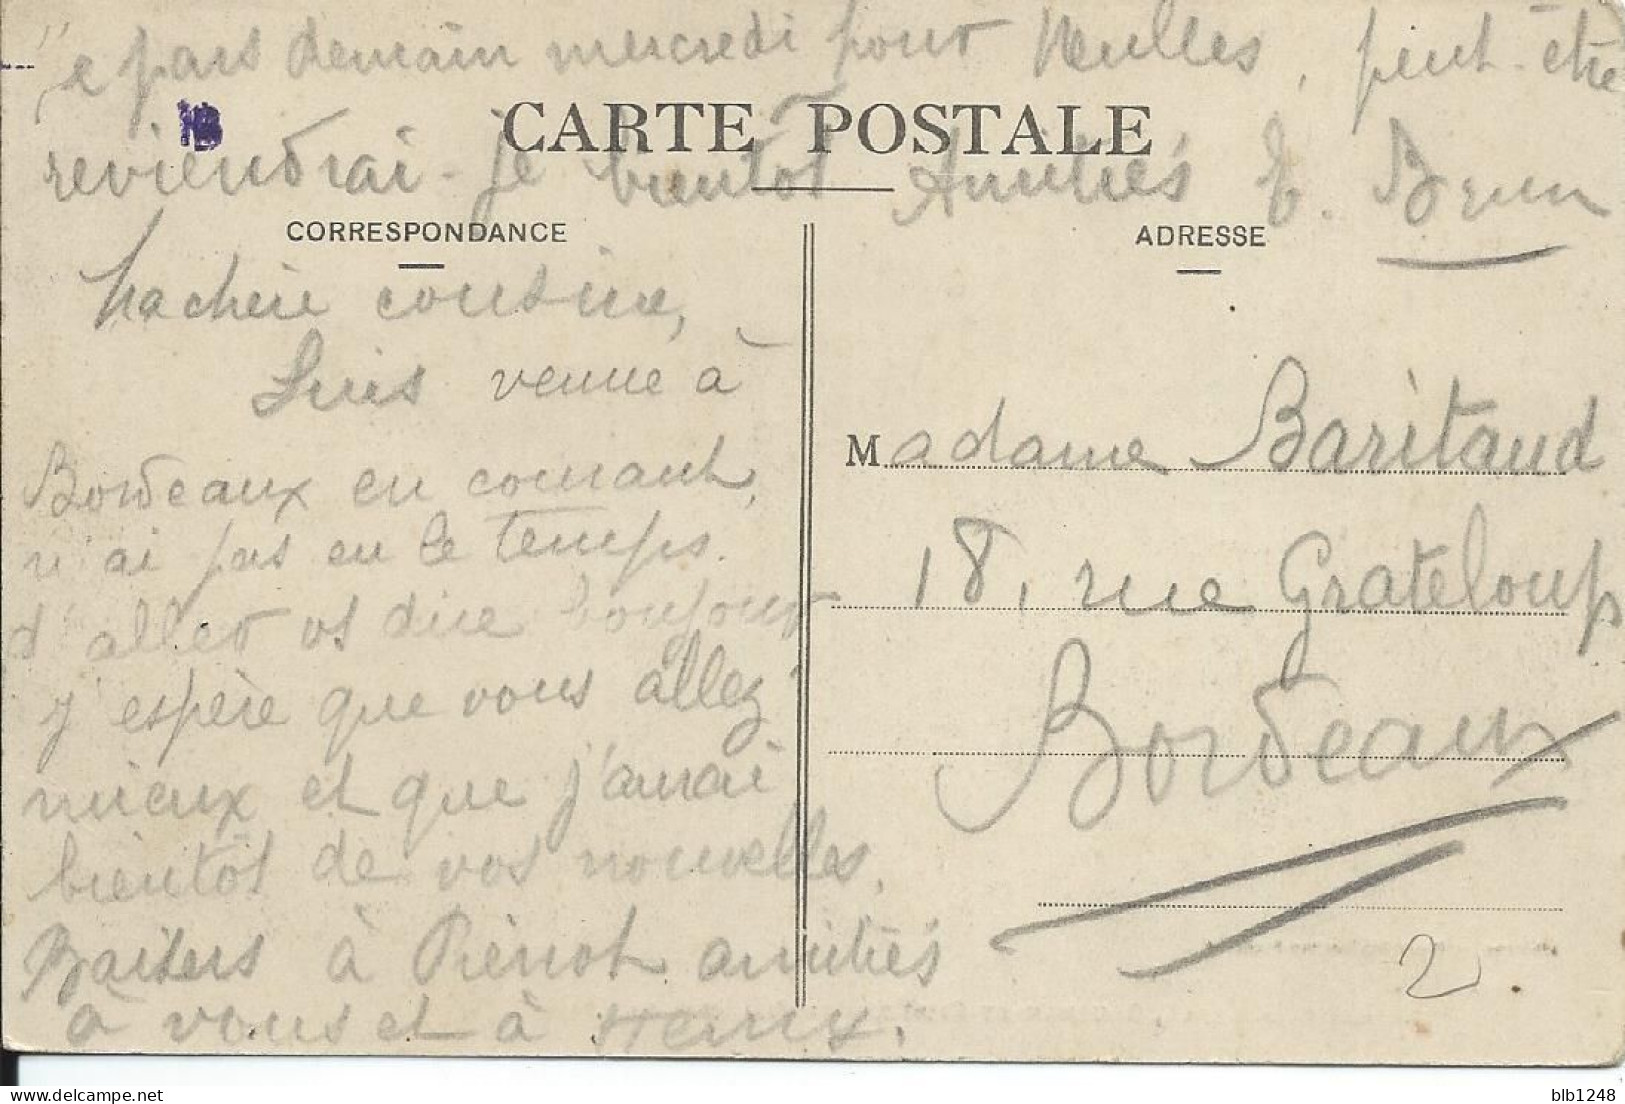 Je pars demain mercredi pour Neulles, peut-être
reviendrai-je bientôt Amitiés E. Brun
CARTE POSTALE
CORRESPONDANCE
ADRESSE
Ma chère cousine,
Suis venue à
Bordeaux en courant,
n'ai pas eu le temps
d'aller vs dire bonjour
j'espère que vous allez
mieux et que j'aurai
bientôt de vos nouvelles.
Baisers à Pierrot amitiés
à vous et à
Madame Baritaud
18, rue Grateloup
Bordeaux
2
blb1248